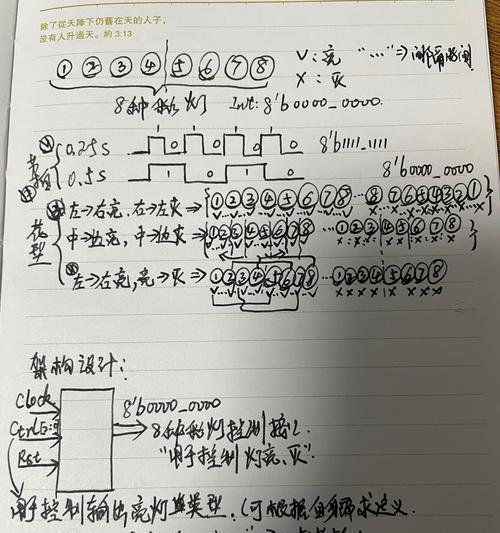 除了從天降下仍舊在天的人子,
沒有人升過天。約 3:13
① ② ③ ④ ⑤ ⑥ ⑦ ⑧
V:亮 "…"⇒
X:灭
8种彩灯 Int: 8'b0000_0000.
0.25s 1 0 1 0 1 0 1 0 8'b1111_1111
节拍 0.5s 1 0 1 0 8'b0000_0000
花型
左→右亮,右→左灭 ⇒ {①②③④⑤⑥⑦⑧ … ⑧⑦⑥⑤④③②①}
中→边亮,中→边灭 ⇒ {①②③④⑤⑥⑦⑧ … ①②③④⑤⑥⑦⑧}
左→右亮,亮→灭 ⇒ ①②③④⑤⑥⑦⑧ … ①②③④⑤⑥⑦⑧
架构设计:
Clock
8'b0000_0000
8种彩灯控制接口.
Rst
"用于控制灯亮、灭".
用于控制输出亮灯类型.(可根据自身需求定义.